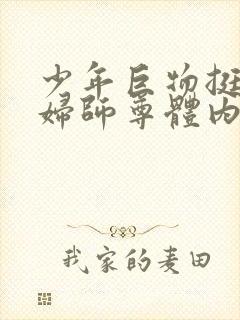 少年巨物挺
婦師尊體內
我家的麦田